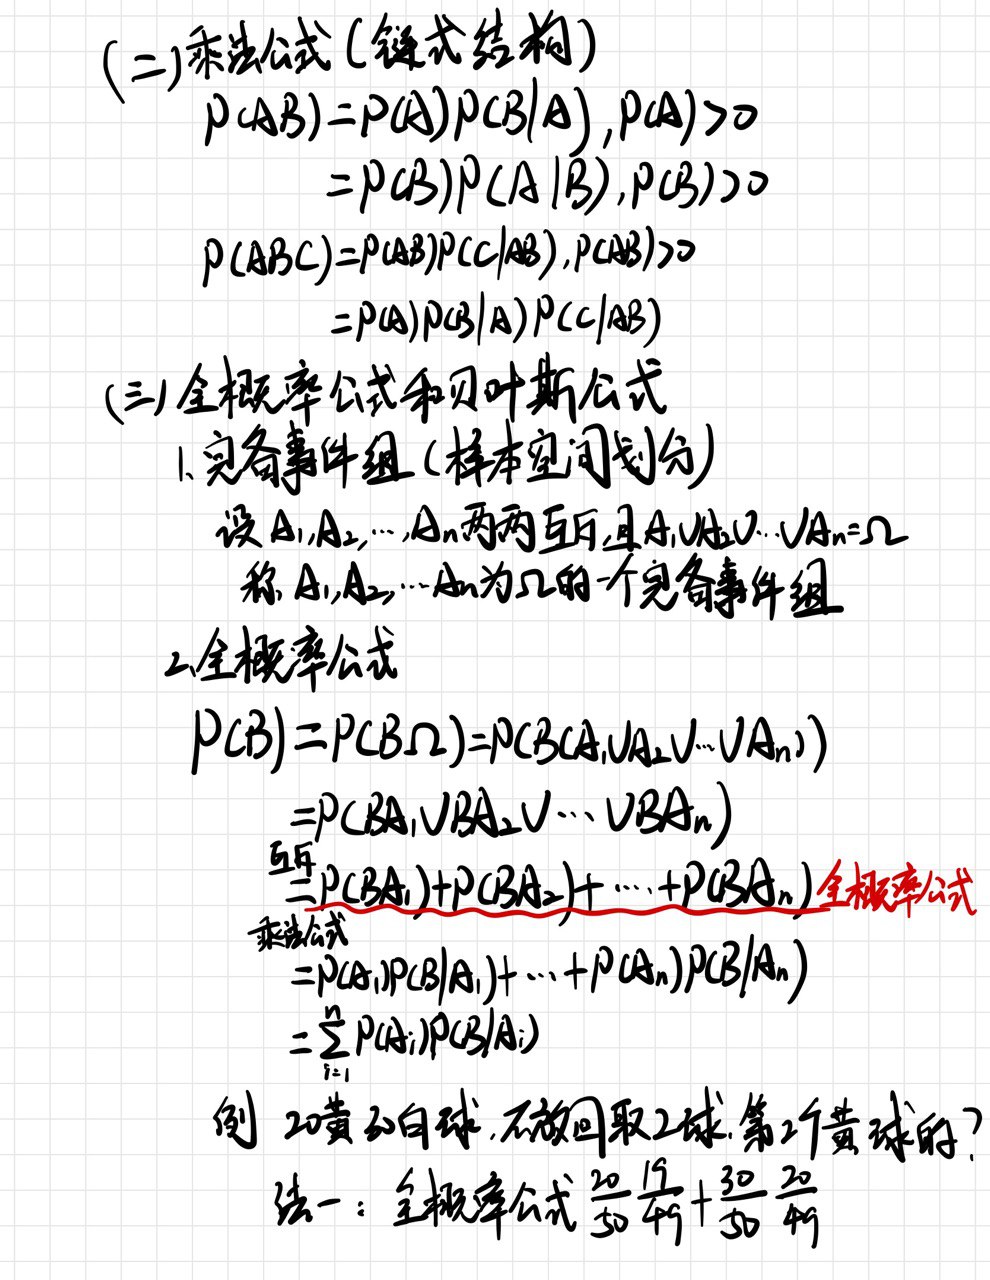 (二)乘法公式(链式结构)
P(AB)=P(A)P(B|A),P(A)>0
=P(B)P(A|B),P(B)>0
P(ABC)=P(AB)P(C|AB),P(AB)>0
=P(A)P(B|A)P(C|AB)
(三)全概率公式和贝叶斯公式
1、完备事件组(样本空间划分)
设A₁,A₂,…,Aₙ两两互斥,且A₁∪A₂∪…∪Aₙ=Ω
称A₁,A₂,…Aₙ为Ω的一个完备事件组
2、全概率公式
P(B)=P(BΩ)=P(B(A₁∪A₂∪…∪Aₙ))
=P(BA₁∪BA₂∪…∪BAₙ)
互斥
=P(BA₁)+P(BA₂)+……+P(BAₙ) 全概率公式
乘法公式
=P(A₁)P(B|A₁)+…+P(Aₙ)P(B|Aₙ)
=∑ⁿᵢ₌₁P(Aᵢ)P(B|Aᵢ)
例 20黄30白球,不放回取2球,第2个黄球的?
法一:全概率公式 20/50 19/49 + 30/50 20/49